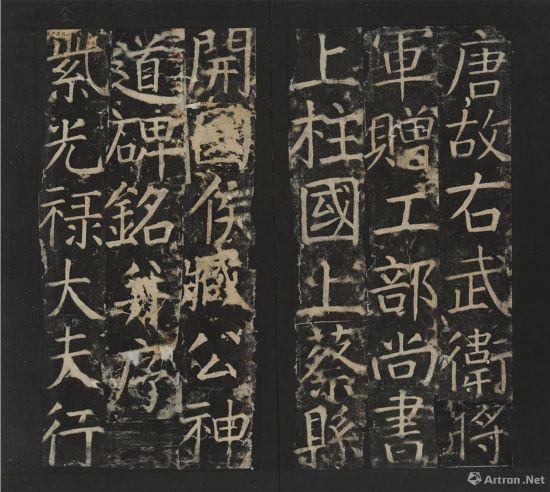 唐故右武衛將
軍贈工部尚書
上柱國上蔡縣
開國侯臧公神
道碑銘并序
紫光祿大夫行
Artron.Net